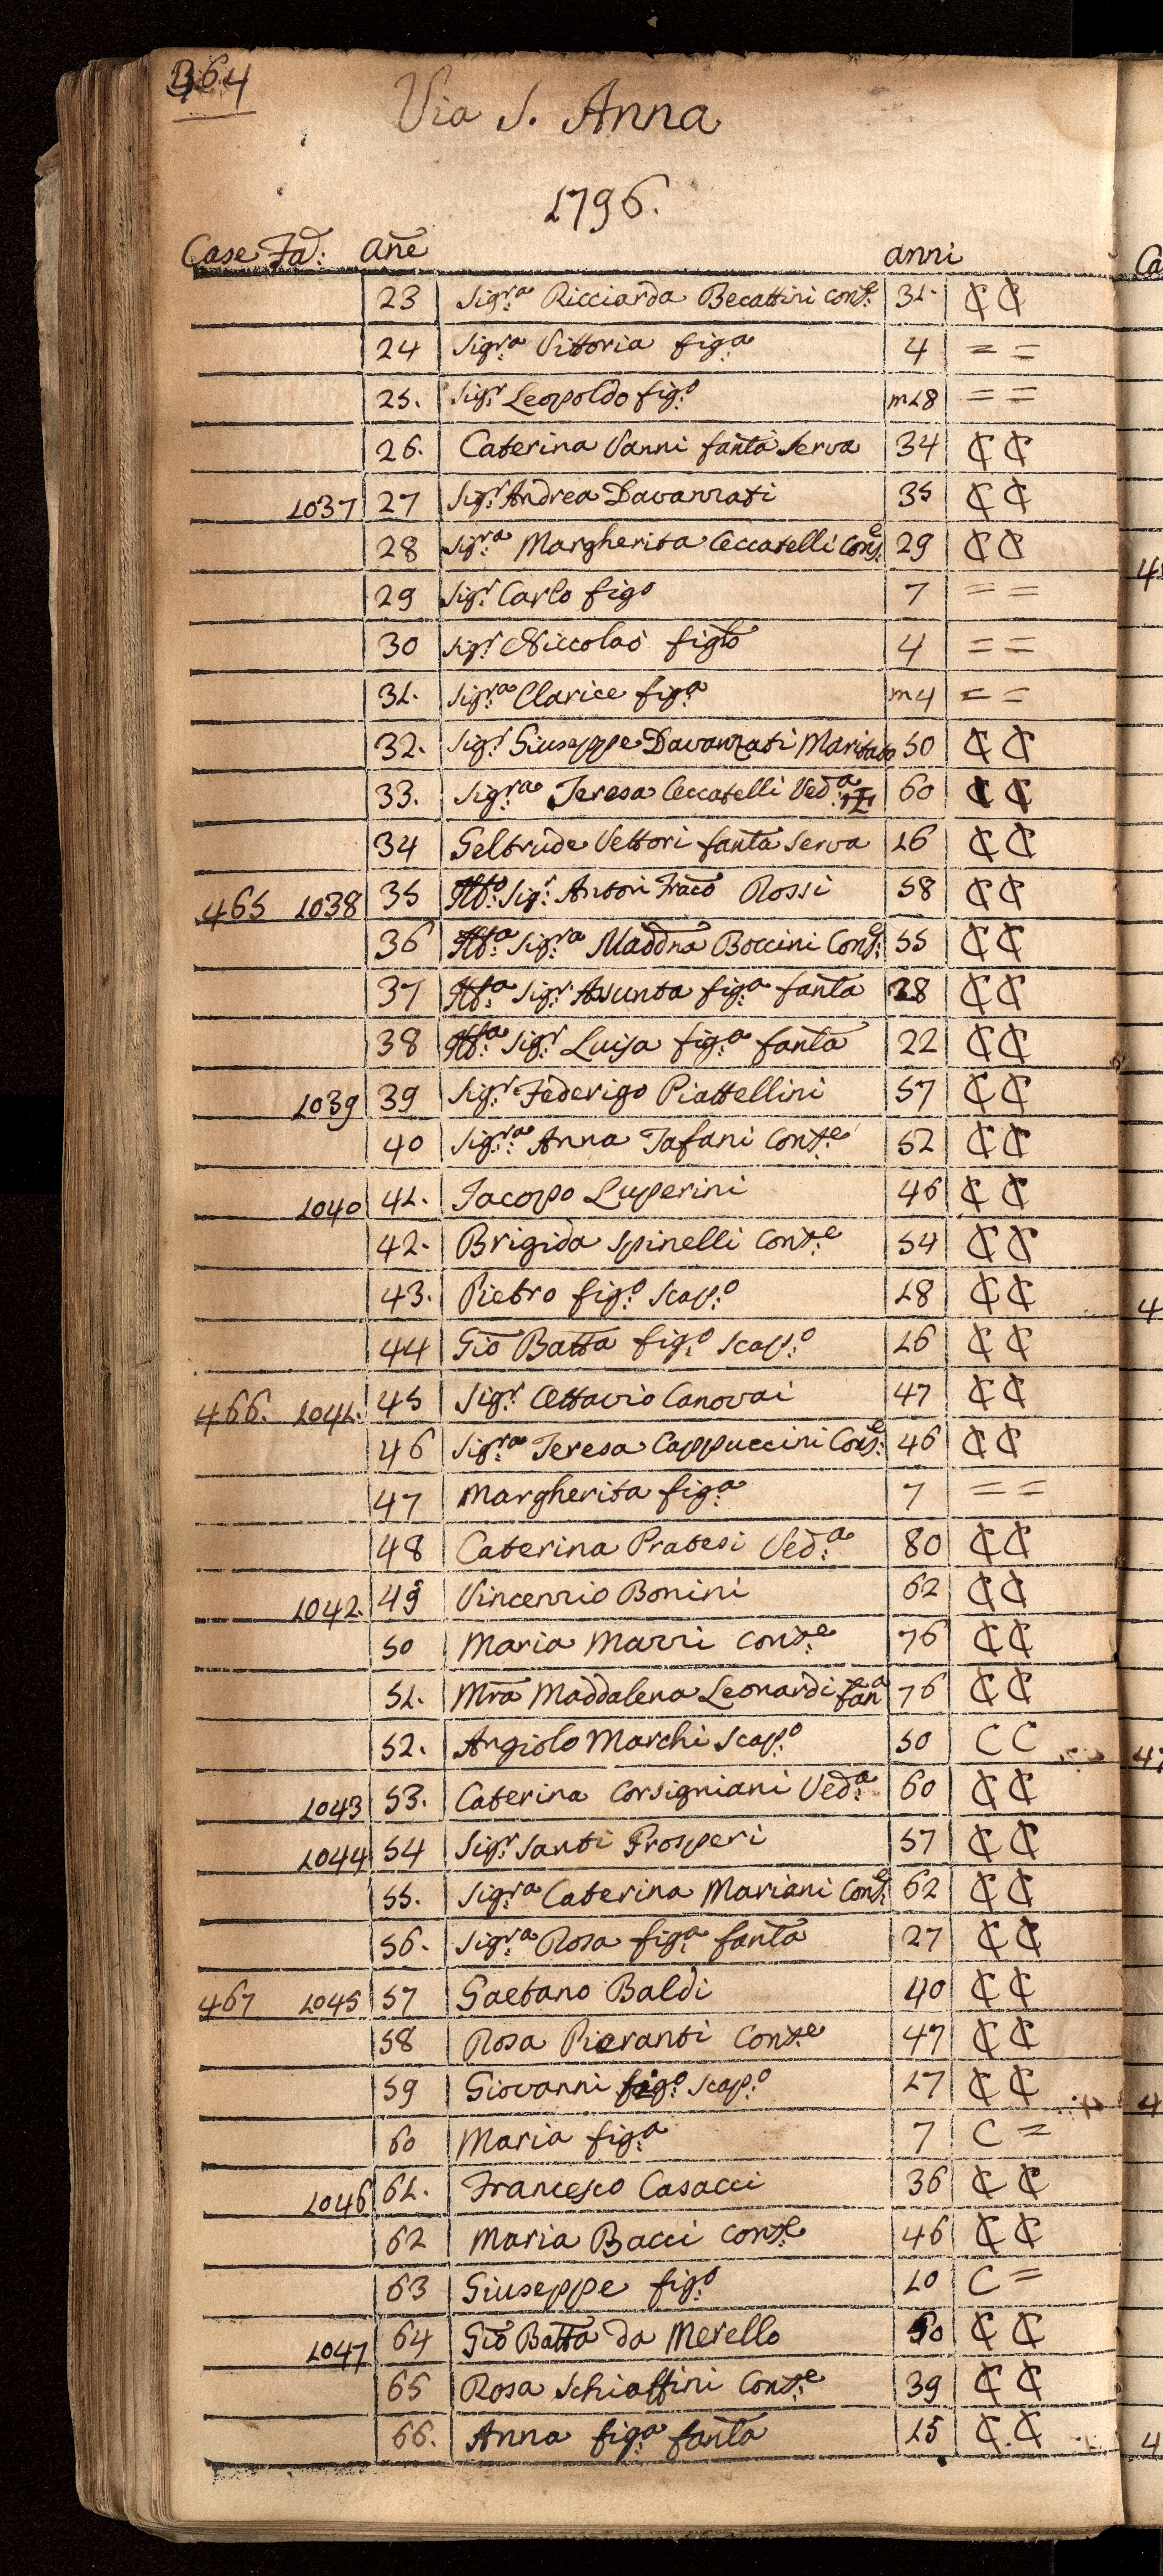 364
Via S. Anna
1796.
Case Fa: Añe anni
23 Sig.ra Ricciarda Becattini Cons.e 31. ₵ ₵
24 Sig.ra Vittoria fig.a 4 = =
25. Sig.r Leopoldo fig.o m18 = =
26. Caterina Vanni fanta Serva 34 ₵ ₵
1037 27 Sig.r Andrea Davanzati 35 ₵ ₵
28 Sig.ra Margherita Ceccatelli Cons.e 29 ₵ ₵
29 Sig.r Carlo figo 7 = =
30 Sig.r Niccolaò figlo 4 = =
31. Sig.ra Clarice fig.a m4 = =
32. Sig.r Giuseppe Davanzati Maritato 50 ₵ ₵
33. Sig.ra Teresa Ceccatelli Ved.a 60 ₵ ₵
34 Geltrude Vettori fanta Serva 16 ₵ ₵
465 1038 35 Sig.r Anton Fraco Rossi 58 ₵ ₵
36 Sig.ra Maddna Boccini Cons.e 55 ₵ ₵
37 Sig.r Asunta fig.a fanta 28 ₵ ₵
38 Sig.r Luisa fig.a fanta 22 ₵ ₵
1039 39 Sig.r Federigo Piattellini 57 ₵ ₵
40 Sig.ra Anna Tafani Cons.e 52 ₵ ₵
1040 41. Jacopo Luperini 46 ₵ ₵
42. Brigida Spinelli Cons.e 54 ₵ ₵
43. Pietro fig.o Scap.o 18 ₵ ₵
44 Gio Batta fig.o Scap.o 16 ₵ ₵
466. 1041. 45 Sig.r Ottavio Canovai 47 ₵ ₵
46 Sig.ra Teresa Cappuccini Cons.e 46 ₵ ₵
47 Margherita fig.a 7 = =
48 Caterina Pratesi Ved.a 80 ₵ ₵
1042. 49 Vincenzio Bonini 62 ₵ ₵
50 Maria Mazzi Cons.e 76 ₵ ₵
51. Mra Maddalena Leonardi fana 76 ₵ ₵
52. Angiolo Marchi Scap.o 50 C C
1043 53. Caterina Corsigniani Ved.a 60 ₵ ₵
1044 54 Sig.r Santi Prosperi 57 ₵ ₵
55. Sig.ra Caterina Mariani Cons.e 62 ₵ ₵
56. Sig.ra Rosa fig.a fanta 27 ₵ ₵
467 1045 57 Gaetano Baldi 40 ₵ ₵
58 Rosa Pieranti Cons.e 47 ₵ ₵
59 Giovanni fig.o Scap.o 17 ₵ ₵
60 Maria fig.a 7 C =
1046 61. Francesco Casacci 36 ₵ ₵
62 Maria Bacci Cons.e 46 ₵ ₵
63 Giuseppe fig.o 10 C =
1047 64 Gio Batta da Merello 50 ₵ ₵
65 Rosa Schiaffini Cons.e 39 ₵ ₵
66. Anna fig.a fanta 15 ₵ ₵